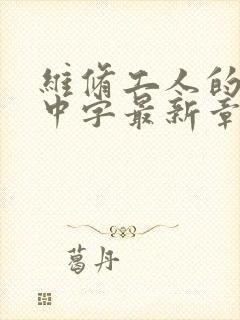 維脩工人的
中字最新章
葛丹